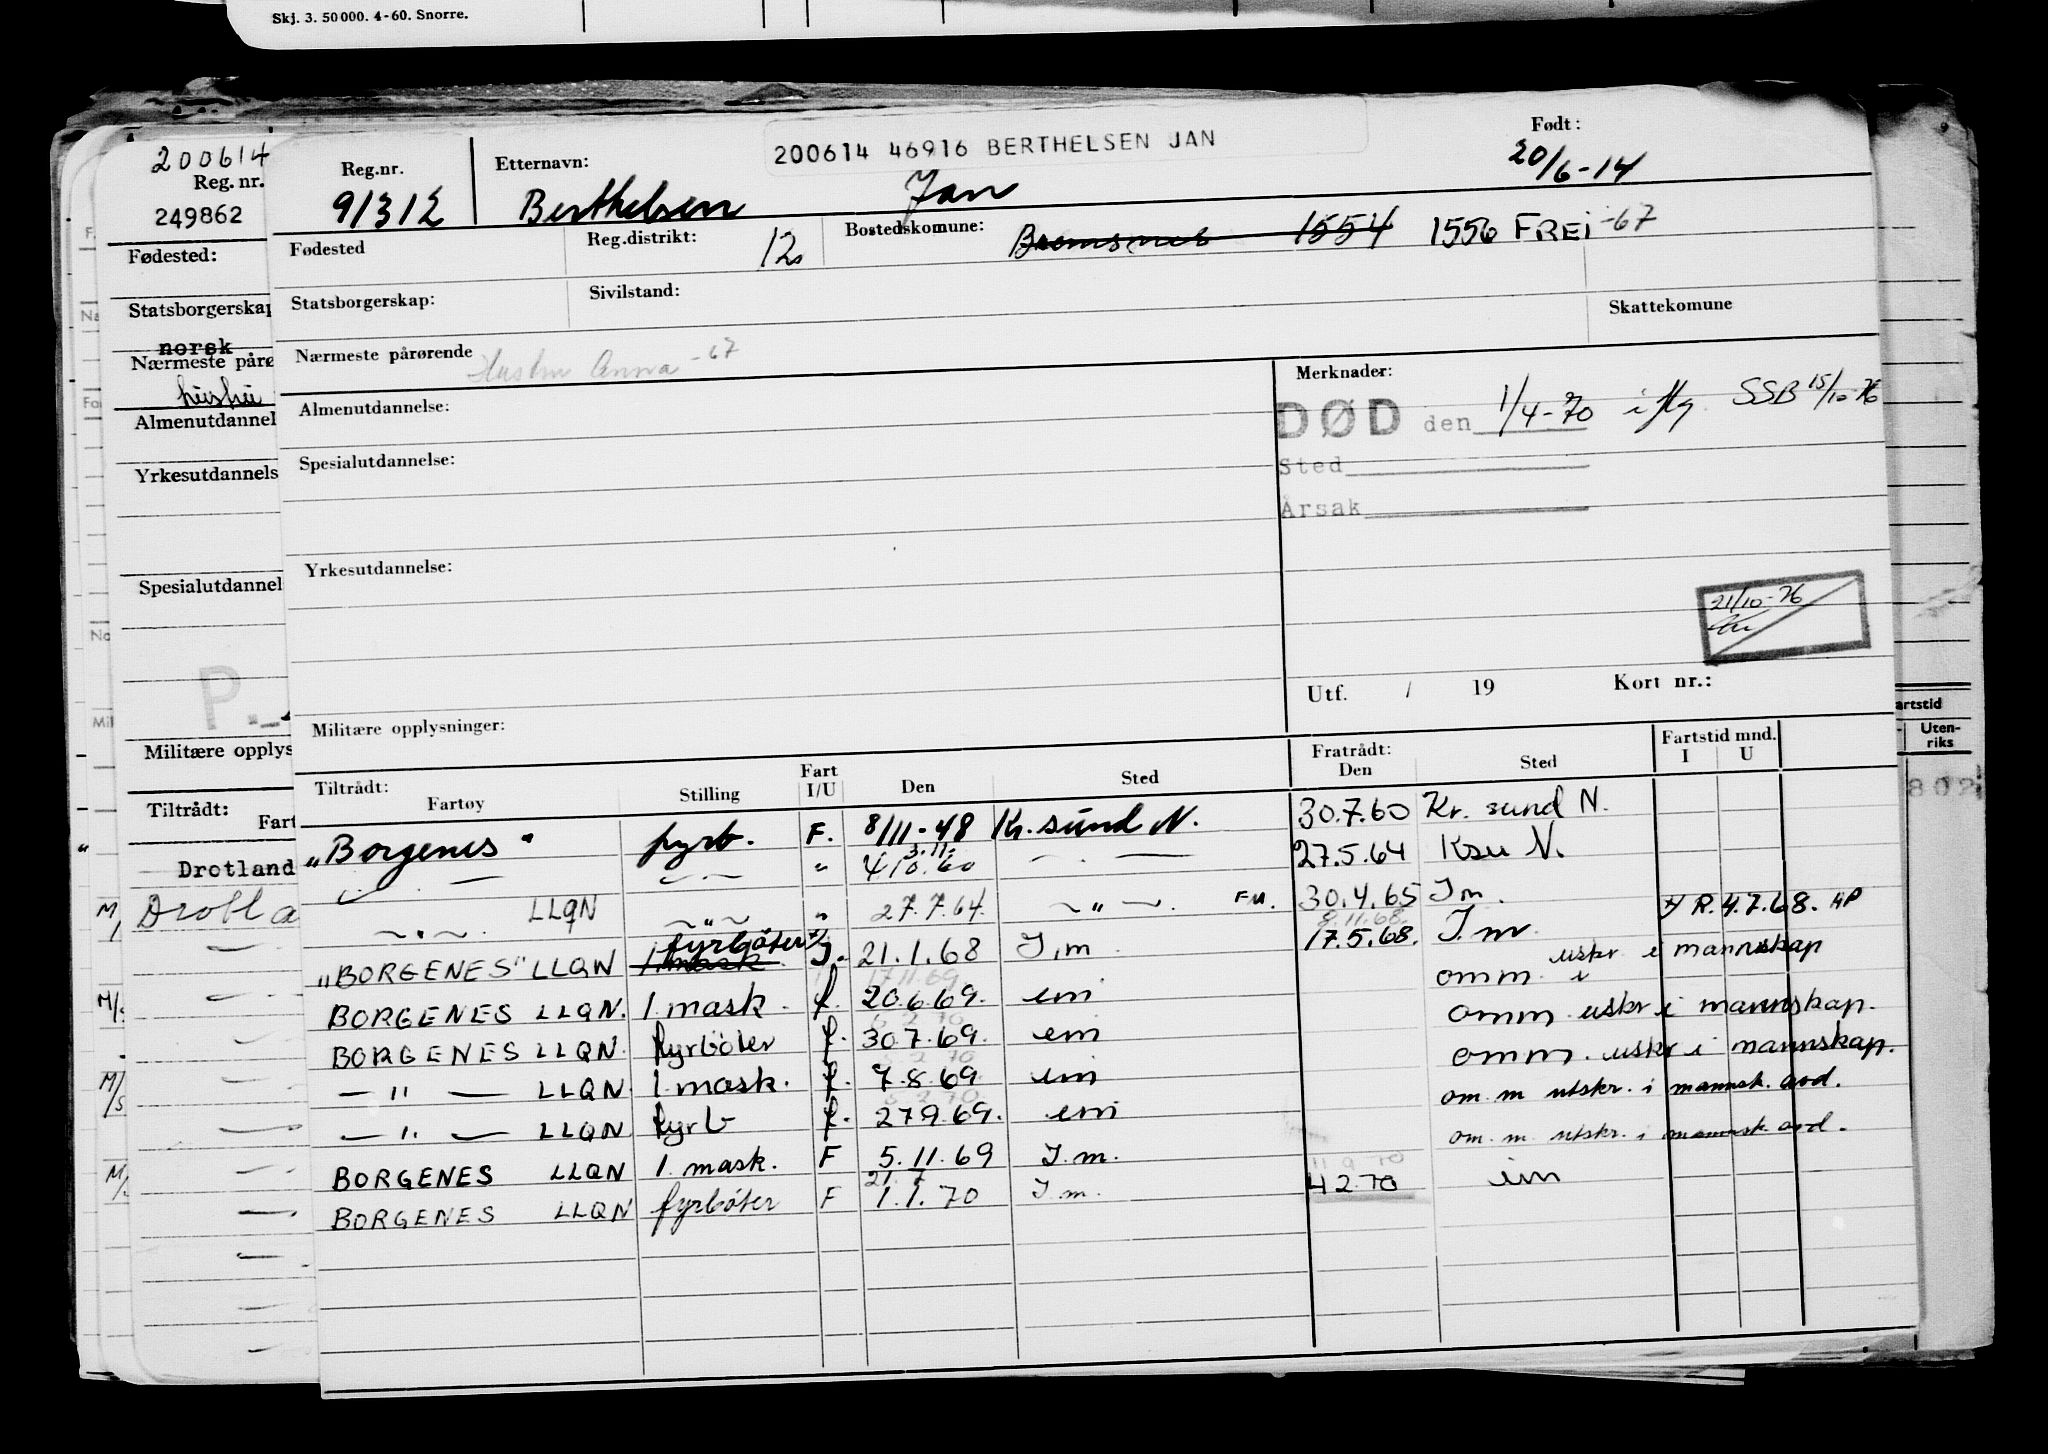 Skj. 3. 50000. 4-60. Snorre.
200614
Reg. nr.
249862
Fødested:
Statsborgerskap
norsk
Nærmeste påre
Almenutdannel
Yrkesutdannels
Spesialutdannel
P.
Militære opplys
Tiltrådt:
Fart
Drotland
Drotla
200614 46916 BERTHELSEN JAN
Reg.nr. Etternavn: Født:
91312 Berthelsen Jan 20/6-14
Fødested Reg.distrikt: 12 Bostedskomune: 1554 1556 FREI -67
Statsborgerskap: Sivilstand: Skattekomune
Nærmeste pårørende Hustru Anna -67
Merknader:
Almenutdannelse:
DØD den 1/4-70 SSB 15/10-76
Spesialutdannelse:
Sted
Årsak
Yrkesutdannelse:
21/10-76
Utf. / 19 Kort nr.:
Militære opplysninger:
Tiltrådt: Fartøy Stilling Fart I/U Den Sted Fratrådt: Den Sted Fartstid mnd. I U
"Borgenes" fyrb. F. 8/11-48 Kr. sund N. 30.7.60 Kr. sund N.
— " — 3.11. 4.10.60 — 27.5.64 Ksu N.
— " — LLQN — " — " 27.7.64. — " — . F.u. 30.4.65 I m.
8.11.68.
17.5.68. I. m R. 4.7.68. AP
"BORGENES" LLQN 1 mask fyrbøter I. 21.1.68 I.m omm. i uskr i mannskap
17.11.69
BORGENES LLQN. 1. mask. f. 20.6.69. em omm. uskr i mannskap.
BORGENES LLQN. fyrbøter f. 30.7.69. em omm. uskr i mannskap.
— " — LLQN. 1. mask. f. 7.8.69 em om. m utskr. i mannsk. avd.
— " — LLQN fyrb f. 27.9.69. em om. m. utskr. i mannsk. avd.
BORGENES LLQN 1. mask. F 5.11.69 I.m. 11 9 70
BORGENES LLQN fyrbøter F 21.7 1.1.70 I.m. 4.2.70 em
artstid
Uten-
riks
802